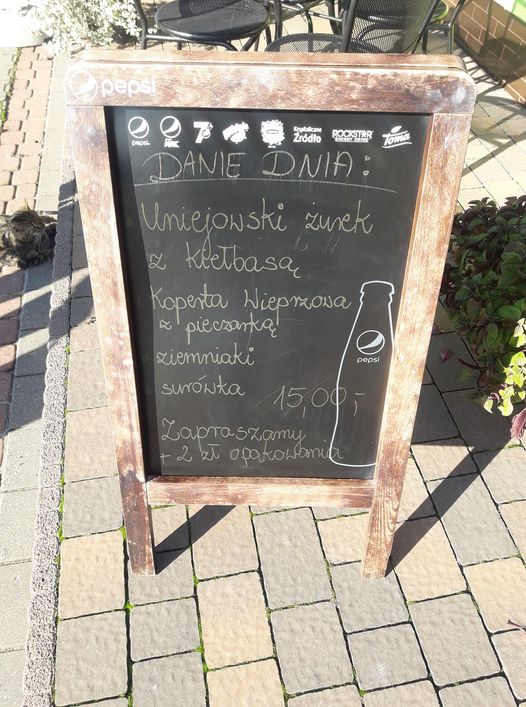 pepsi
pepsi pepsi MAX 7UP Krystaliczne Źródło ROCKSTAR ENERGY DRINK Toma
DANIE DNIA:
Uniejowski żurek
z kiełbasą
Koperta Wieprzowa
z pieczarką
ziemniaki
surówka 15,00,-
pepsi
Zapraszamy
+ 2 zł opakowania